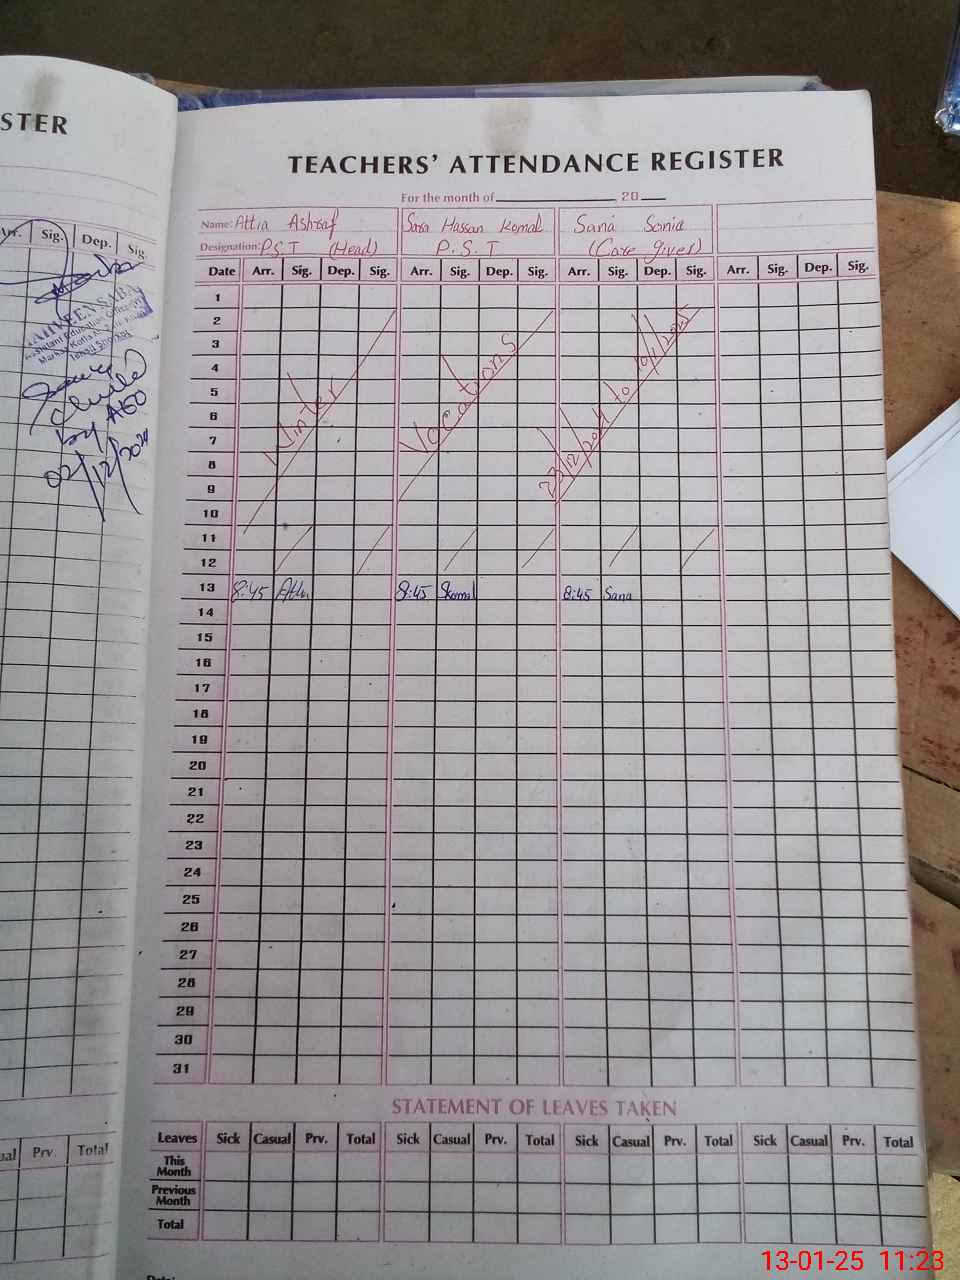 STER
Arr. Sig. Dep. Sig.
by AEO
02/12/2024
ual Prv. Total
TEACHERS' ATTENDANCE REGISTER
For the month of , 20
Name: Attia Ashraf Sara Hassan Komal Sana Sonia
Designation: P.S.T (Head) P.S.T (Care giver)
Date Arr. Sig. Dep. Sig. Arr. Sig. Dep. Sig. Arr. Sig. Dep. Sig. Arr. Sig. Dep. Sig.
1
2
3
4
5
6
7
8
9
10
11
12
Winter Vacations 23/12/2024 to 10/1/2025
13 8:45 8:45 Skomal 8:45 Sana
14
15
16
17
18
19
20
21
22
23
24
25
26
27
28
29
30
31
STATEMENT OF LEAVES TAKEN
Leaves Sick Casual Prv. Total Sick Casual Prv. Total Sick Casual Prv. Total Sick Casual Prv. Total
This Month
Previous Month
Total
13-01-25 11:23